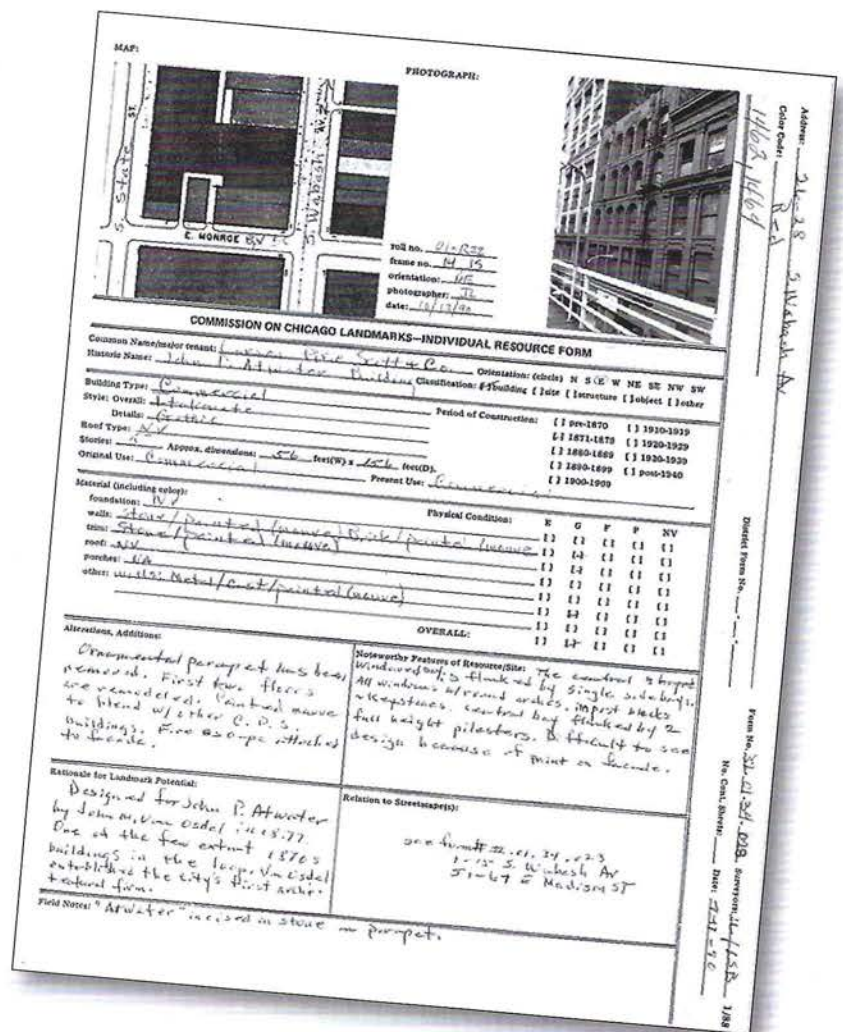 MAP:
PHOTOGRAPH:
S. State ST.
S. Wabash Av
E. MONROE
roll no. 01-R22
frame no. 14 15
orientation: NE
photographer:
date: 10/13/90
COMMISSION ON CHICAGO LANDMARKS—INDIVIDUAL RESOURCE FORM
Common Name/major tenant: Carson Pirie Scott + Co. Orientation: (circle) N S E W NE SE NW SW
Historic Name: John P. Atwater Building Classification: building [ ]site [ ]structure [ ]object [ ]other
Building Type: Commercial
Style: Overall: Italianate
Details: Gothic
Roof Type: NV
Stories: Approx. dimensions: 56 feet(W) x 156 feet(D).
Original Use: Commercial Present Use: Commercial
Period of Construction: [ ] pre-1870 [ ] 1910-1919
1871-1879 [ ] 1920-1929
[ ] 1880-1889 [ ] 1930-1939
[ ] 1890-1899 [ ] post-1940
[ ] 1900-1909
Material (including color): Physical Condition: E G F P NV
foundation: NV
walls: Stone/painted (mauve) Brick/painted (mauve
trim: Stone/painted (mauve)
roof: NV
porches: NA
other: walls: Metal/Cast/painted (mauve)
OVERALL:
Alterations, Additions:
Ornamental parapet has been
removed. First two floors
are remodeled. Painted mauve
to blend w/ other C.P.S.
buildings. Fire escape attached
to facade.
Noteworthy Features of Resource/Site: The central
is flanked by single side bays.
All windows w/round arches, impost blocks
+ keystones. central bay flanked by 2
full height pilasters. Difficult to see
design because of paint on facade.
Rationale for Landmark Potential:
Designed for John P. Atwater
by John M. Van Osdel in 1877.
One of the few extant 1870s
buildings in the loop. Van Osdel
established the city's first archi-
tectural firm.
Relation to Streetscape(s):
see form# 32.01.34.023
1-15 S. Wabash Av
51-67 E Madison ST
Field Notes: "Atwater" incised in stone on parapet.
Address: 26-28 S Wabash Av
Color Code: Red
1462, 1464
District Form No.
Form No. 32.01.34.028 Surveyors: JL/LSB 1/88
No. Cont. Sheets: Date: